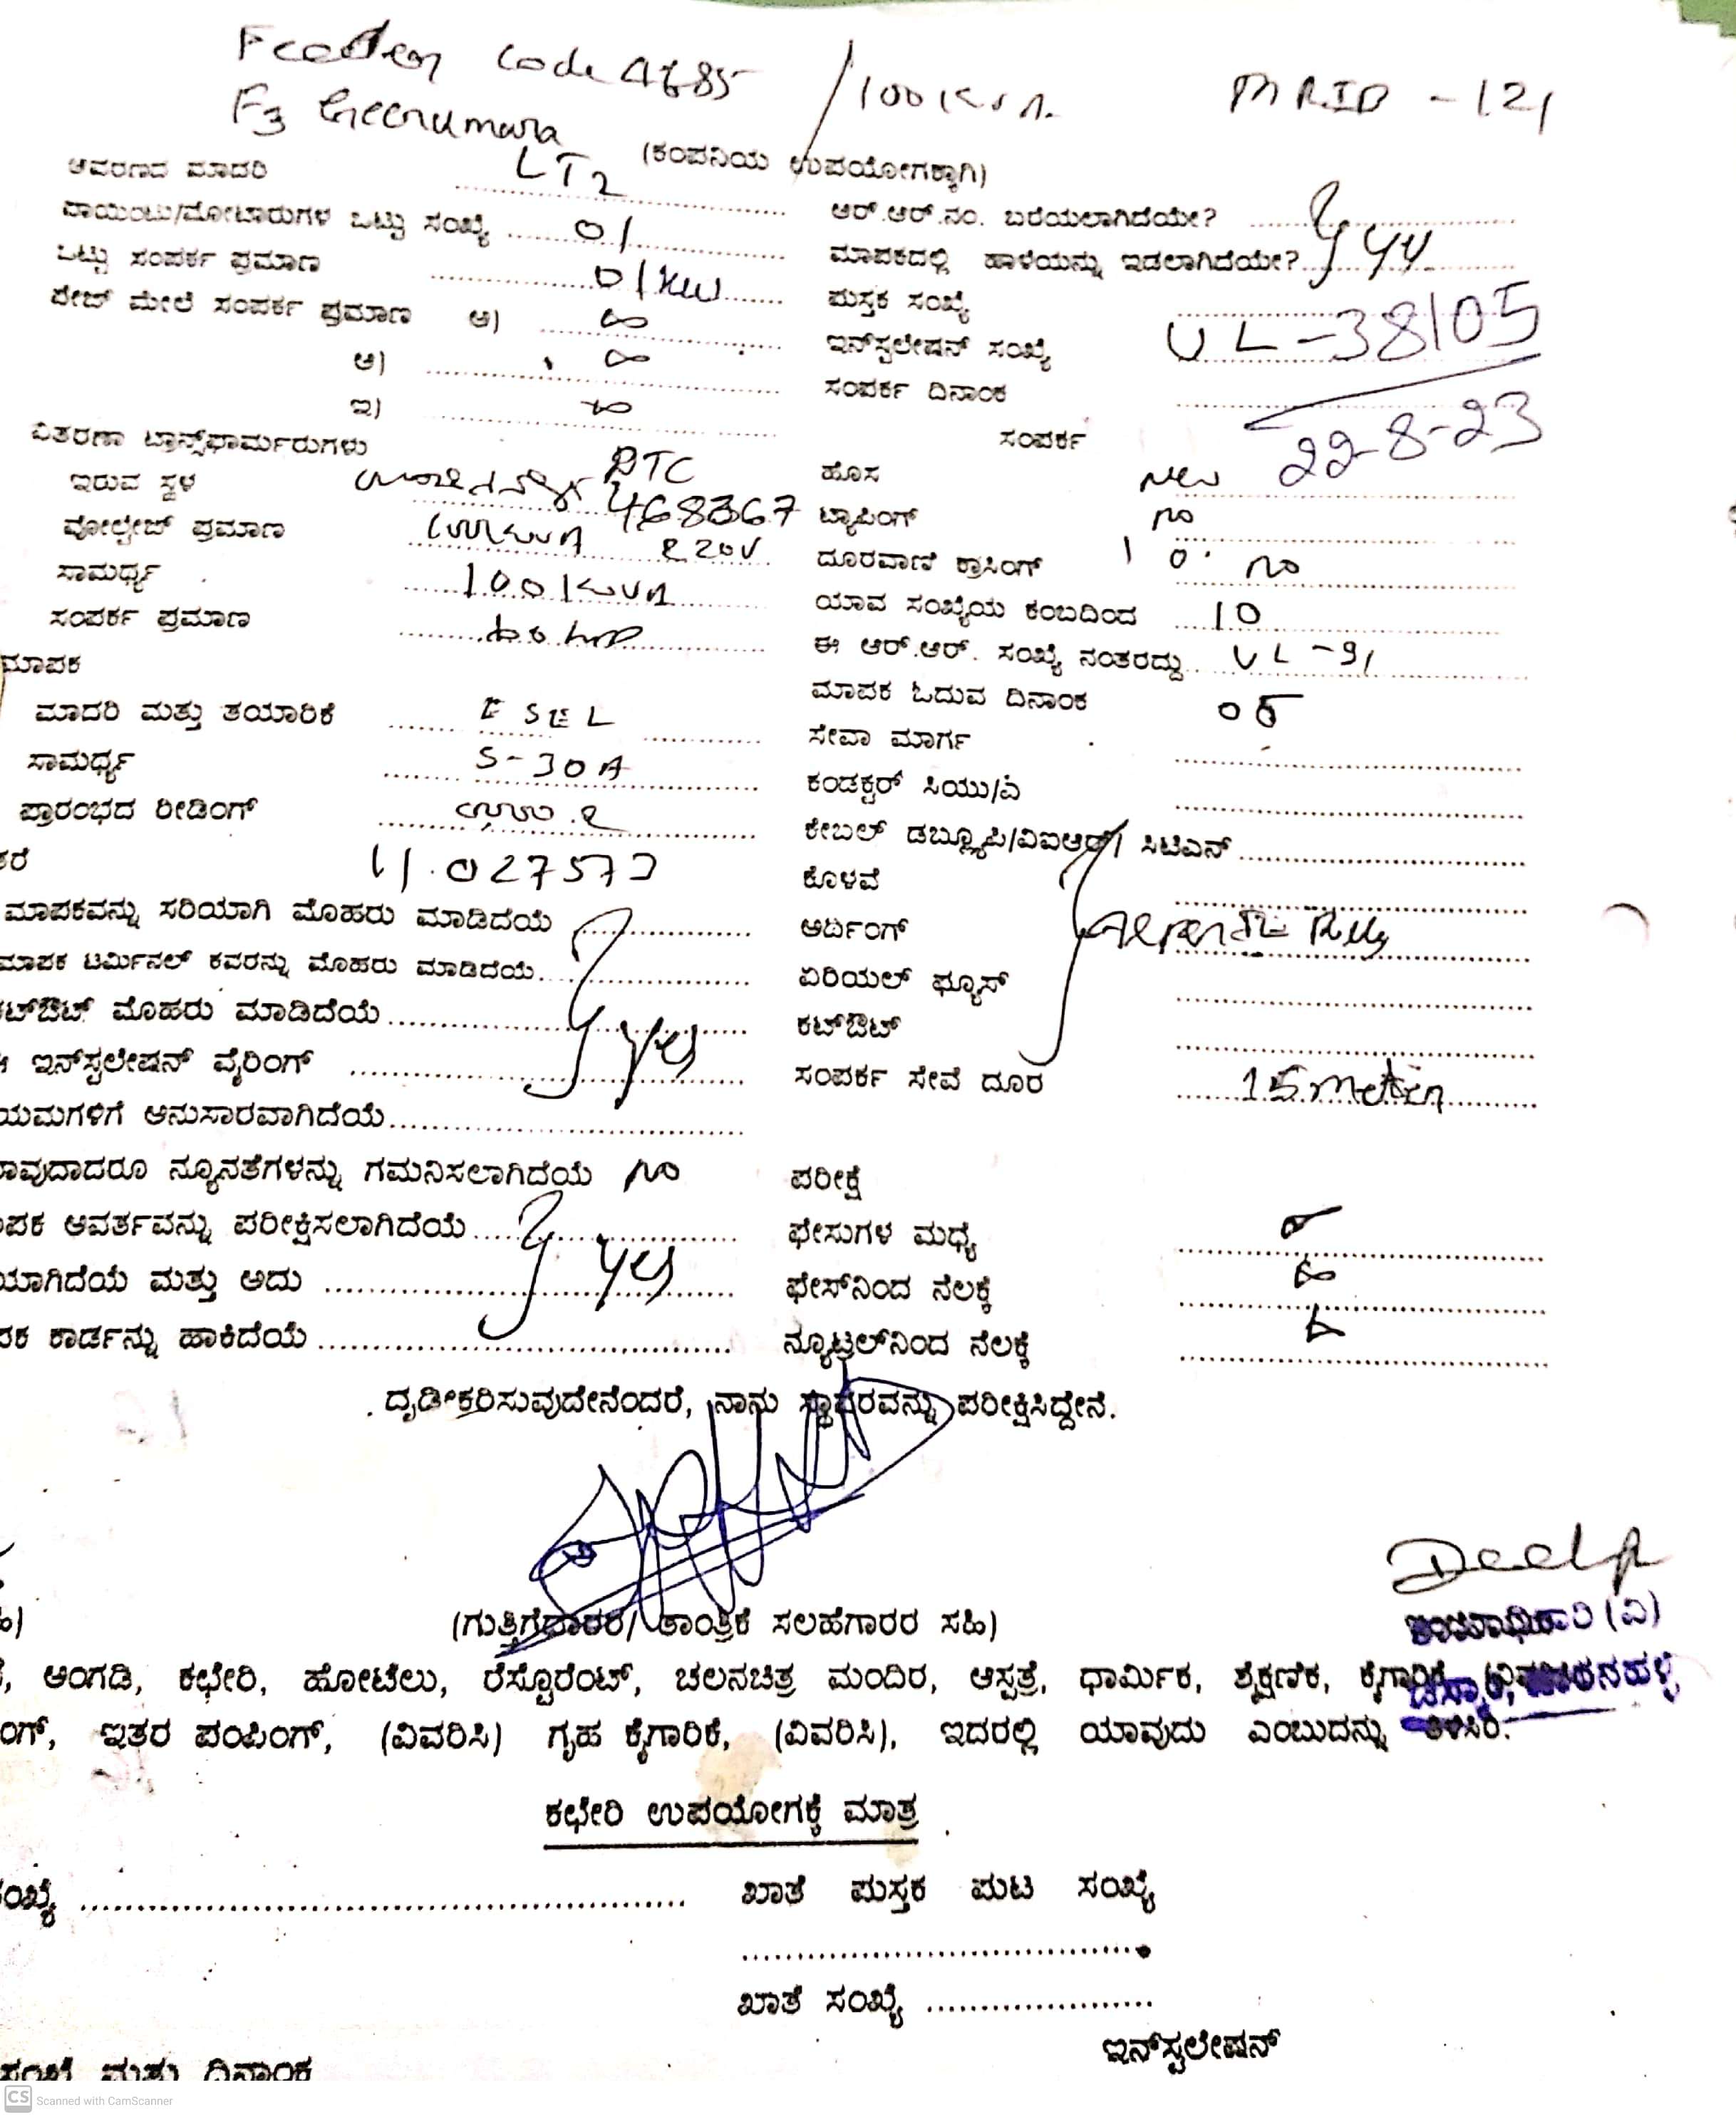 Feeder Code 4685 / 100 KVA MRID - 121
F3
(ಕಂಪನಿಯ ಉಪಯೋಗಕ್ಕಾಗಿ)
ಆವರಣದ ಮಾದರಿ LT2
ಪಾಯಿಂಟು/ಮೋಟಾರುಗಳ ಒಟ್ಟು ಸಂಖ್ಯೆ 01
ಒಟ್ಟು ಸಂಪರ್ಕ ಪ್ರಮಾಣ 01 KW
ಪೇಜ್ ಮೇಲೆ ಸಂಪರ್ಕ ಪ್ರಮಾಣ ಅ)
ಆ)
ಇ)
ವಿತರಣಾ ಟ್ರಾನ್ಸ್‌ಫಾರ್ಮರುಗಳು
ಇರುವ ಸ್ಥಳ DTC 468367
ವೋಲ್ಟೇಜ್ ಪ್ರಮಾಣ 220V
ಸಾಮರ್ಥ್ಯ 100 KVA
ಸಂಪರ್ಕ ಪ್ರಮಾಣ
ಮಾಪಕ
ಮಾದರಿ ಮತ್ತು ತಯಾರಿಕೆ
ಸಾಮರ್ಥ್ಯ 5-30A
ಪ್ರಾರಂಭದ ರೀಡಿಂಗ್
11.027573
ಮಾಪಕವನ್ನು ಸರಿಯಾಗಿ ಮೊಹರು ಮಾಡಿದೆಯೆ
ಮಾಪಕ ಟರ್ಮಿನಲ್ ಕವರನ್ನು ಮೊಹರು ಮಾಡಿದೆಯೆ
ಕಟ್‌ಔಟ್ ಮೊಹರು ಮಾಡಿದೆಯೆ yes
ಇನ್‌ಸ್ಟಲೇಷನ್ ವೈರಿಂಗ್
ಯಮಗಳಿಗೆ ಅನುಸಾರವಾಗಿದೆಯೆ
ಾವುದಾದರೂ ನ್ಯೂನತೆಗಳನ್ನು ಗಮನಿಸಲಾಗಿದೆಯೆ no
ಪಕ ಆವರ್ತವನ್ನು ಪರೀಕ್ಷಿಸಲಾಗಿದೆಯೆ
ಯಾಗಿದೆಯೆ ಮತ್ತು ಅದು yes
ಪಕ ಕಾರ್ಡನ್ನು ಹಾಕಿದೆಯೆ
ಆರ್.ಆರ್.ನಂ. ಬರೆಯಲಾಗಿದೆಯೇ?
ಮಾಪಕದಲ್ಲಿ ಹಾಳೆಯನ್ನು ಇಡಲಾಗಿದೆಯೇ? yes
ಪುಸ್ತಕ ಸಂಖ್ಯೆ
ಇನ್‌ಸ್ಟಲೇಷನ್ ಸಂಖ್ಯೆ UL-38105
ಸಂಪರ್ಕ ದಿನಾಂಕ 22-8-23
ಸಂಪರ್ಕ
ಹೊಸ New
ಟ್ಯಾಪಿಂಗ್ no
ದೂರವಾಣಿ ಕ್ರಾಸಿಂಗ್ no
ಯಾವ ಸಂಖ್ಯೆಯ ಕಂಬದಿಂದ 10
ಈ ಆರ್.ಆರ್. ಸಂಖ್ಯೆ ನಂತರದ್ದು UL-91
ಮಾಪಕ ಓದುವ ದಿನಾಂಕ 05
ಸೇವಾ ಮಾರ್ಗ
ಕಂಡಕ್ಟರ್ ಸಿಯು/ಎ
ಕೇಬಲ್ ಡಬ್ಲ್ಯೂಪಿ/ವಿಐಆರ್/ ಸಿಟಿಎಸ್
ಕೊಳವೆ
ಅರ್ದಿಂಗ್
ಏರಿಯಲ್ ಫ್ಯೂಸ್
ಕಟ್‌ಔಟ್
ಸಂಪರ್ಕ ಸೇವೆ ದೂರ 15 meter
ಪರೀಕ್ಷೆ
ಫೇಸುಗಳ ಮಧ್ಯೆ
ಫೇಸ್‌ನಿಂದ ನೆಲಕ್ಕೆ
ನ್ಯೂಟ್ರಲ್‌ನಿಂದ ನೆಲಕ್ಕೆ
ದೃಡೀಕರಿಸುವುದೇನೆಂದರೆ, ನಾನು ಸ್ಥಾವರವನ್ನು ಪರೀಕ್ಷಿಸಿದ್ದೇನೆ.
(ಗುತ್ತಿಗೆದಾರರ/ ತಾಂತ್ರಿಕೆ ಸಲಹೆಗಾರರ ಸಹಿ)
ಅಂಗಡಿ, ಕಛೇರಿ, ಹೋಟೆಲು, ರೆಸ್ಟೊರೆಂಟ್, ಚಲನಚಿತ್ರ ಮಂದಿರ, ಆಸ್ಪತ್ರೆ, ಧಾರ್ಮಿಕ, ಶೈಕ್ಷಣಿಕ, ಕೈಗಾರಿಕೆ,
ಂಗ್, ಇತರ ಪಂಪಿಂಗ್, (ವಿವರಿಸಿ) ಗೃಹ ಕೈಗಾರಿಕೆ, (ವಿವರಿಸಿ), ಇದರಲ್ಲಿ ಯಾವುದು ಎಂಬುದನ್ನು ತಿಳಿಸಿರಿ.
ಕಛೇರಿ ಉಪಯೋಗಕ್ಕೆ ಮಾತ್ರ
ಸಂಖ್ಯೆ
ಖಾತೆ ಪುಸ್ತಕ ಪುಟ ಸಂಖ್ಯೆ
ಖಾತೆ ಸಂಖ್ಯೆ
ಇನ್‌ಸ್ಟಲೇಷನ್
ಸಂಖ್ಯೆ ಮತ್ತು ದಿನಾಂಕ
CS Scanned with CamScanner